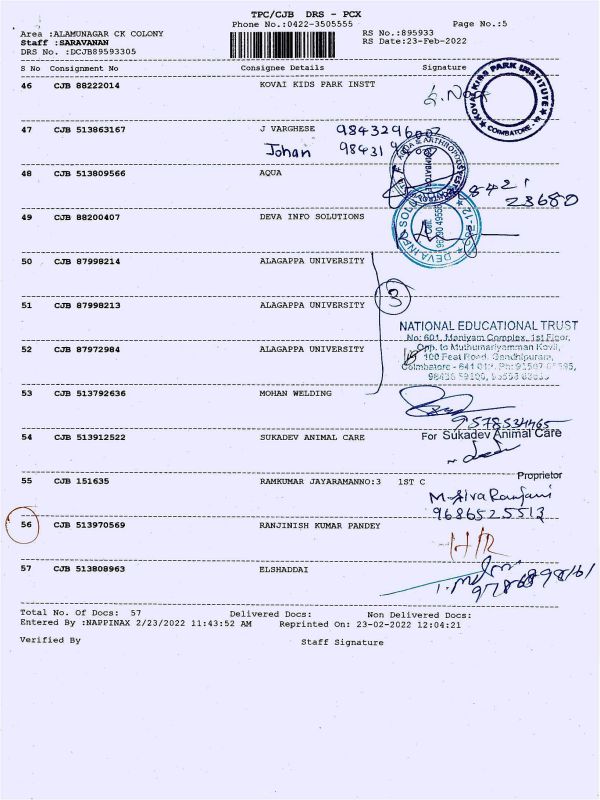 TPC/CJB DRS - PCX
Phone No.:0422-3505555
Page No.:5
Area :ALAMUNAGAR CK COLONY
RS No.:895933
Staff :SARAVANAN
RS Date:23-Feb-2022
DRS No. :DCJB89593305
S No Consignment No Consignee Details Signature
46 CJB 88222014 KOVAI KIDS PARK INSTT
KOVAI KIDS PARK INSTITUTE
COIMBATORE
47 CJB 513863167 J VARGHESE
Johan
48 CJB 513809566 AQUA
8421
23680
49 CJB 88200407 DEVA INFO SOLUTIONS
DEVA INFO SOLU
50 CJB 87998214 ALAGAPPA UNIVERSITY
3
51 CJB 87998213 ALAGAPPA UNIVERSITY
NATIONAL EDUCATIONAL TRUST
No: 601, Maniyam Complex, 1st Floor,
52 CJB 87972984 ALAGAPPA UNIVERSITY
Opp. to Muthumariyamman Kovil,
100 Feet Road, Gandhipuram,
53 CJB 513792636 MOHAN WELDING
9578534465
54 CJB 513912522 SUKADEV ANIMAL CARE
For Sukadev Animal Care
Proprietor
55 CJB 151635 RAMKUMAR JAYARAMANNO:3 1ST C
M. Siva Ranjani
9686525513
56 CJB 513970569 RANJINISH KUMAR PANDEY
57 CJB 513808963 ELSHADDAI
Total No. Of Docs: 57 Delivered Docs: Non Delivered Docs:
Entered By :NAPPINAX 2/23/2022 11:43:52 AM Reprinted On: 23-02-2022 12:04:21
Verified By Staff Signature